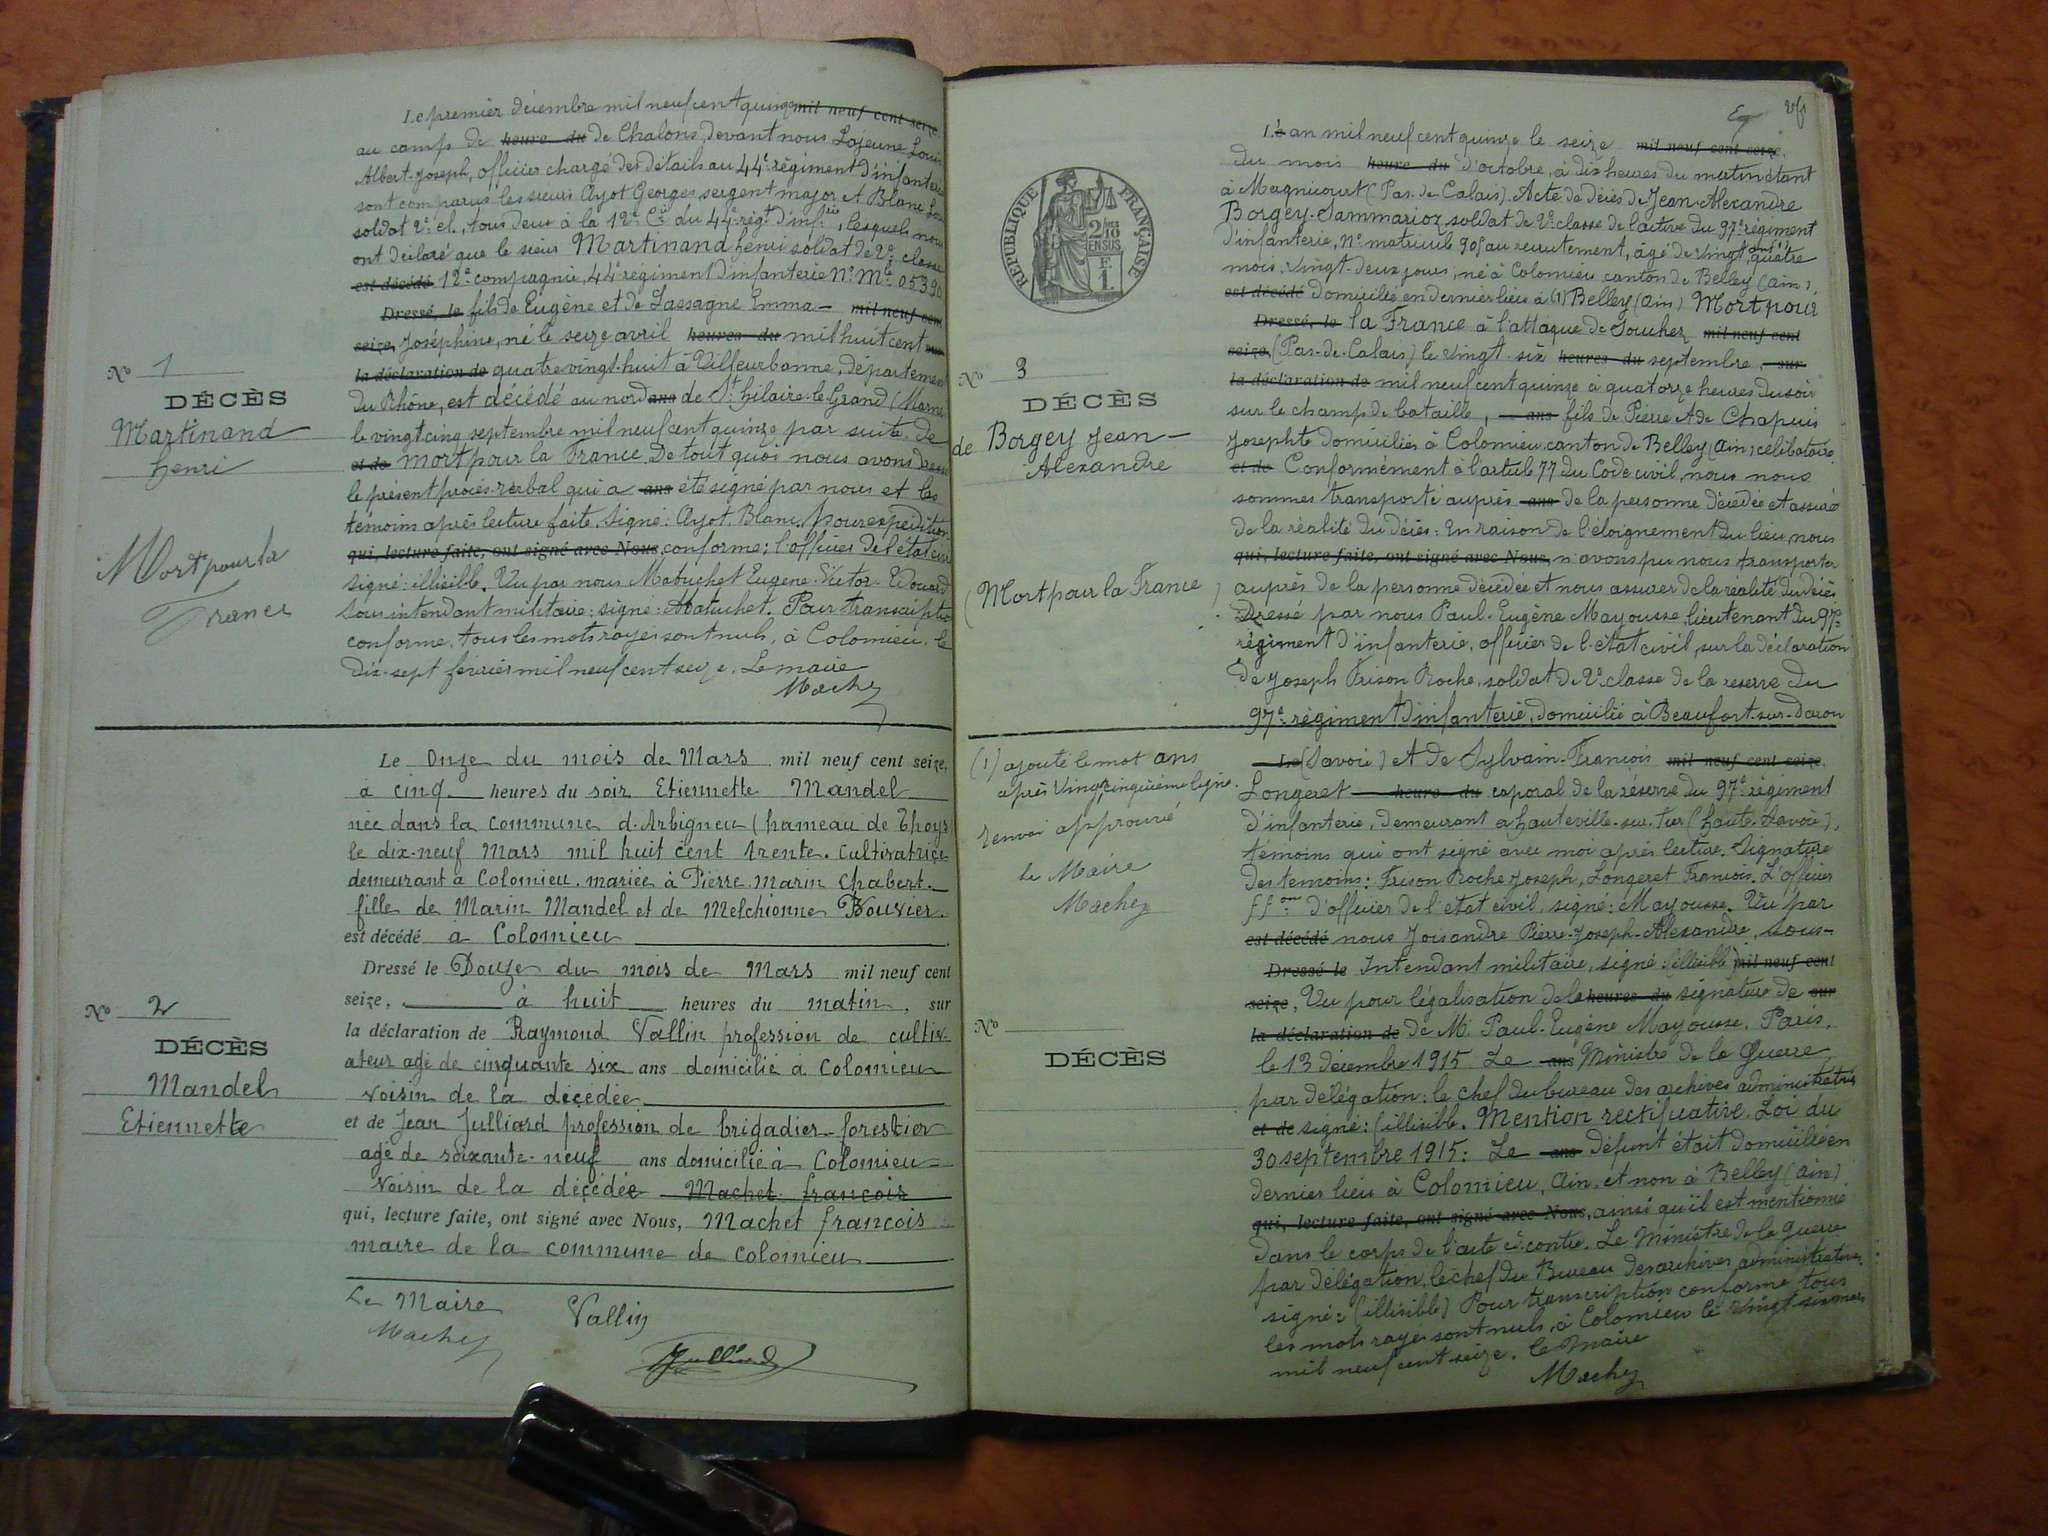 Le premier décembre mil neuf cent quinze mil neuf cent seize
au camp de heure du de Chalons, devant nous Lajeune Louis
Albert-Joseph, officier chargé des détails au 44e régiment d'infanterie
sont comparus les sieurs Ayot Georges sergent major et Blanc
soldat 2e cl., tous deux à la 12e Cie du 44e régt d'infrie, lesquels nous
ont déclaré que le sieur Martinand henri soldat de 2e classe
est décédé 12e compagnie, 44e régiment d'infanterie No Mle 05390
Dressé, le fils de Eugène et de Lassagne Emma - mil neuf cent
seize, Joséphine, né le seize avril heures du mil huit cent sur
la déclaration de quatre vingt huit à Villeurbanne, département
du Rhône, est décédé au nord ans de St hilaire-le-Grand (Marne
le vingt cinq septembre mil neuf cent quinze par suite de
et de mort pour la France. De tout quoi nous avons dressé
le présent procès-verbal qui a ans été signé par nous et les
témoins après lecture faite. Signé: Ayot, Blanc, pour expédition
qui, lecture faite, ont signé avec Nous, conforme: l'officier de l'état civil
signé: illisible. Vu par nous Matuchet Eugène-Victor-Edouard
Sous intendant militaire: signé: Matuchet. Pour transcription
conforme, tous les mots rayés sont nuls, à Colomieu, le
dix-sept février mil neuf cent seize. Le maire
Machet
No 1
DÉCÈS
Martinand
henri
Mort pour la
France
Le Onze du mois de Mars mil neuf cent seize,
à cinq heures du soir Etiennette Mandel
née dans la commune d'Arbigneu (hameau de Thoys)
le dix-neuf Mars mil huit cent trente. Cultivatrice
demeurant à Colomieu. mariée à Pierre Marin Chabert.
fille de Marin Mandel et de Melchionne Bouvier.
est décédé a Colomieu
Dressé le Douze du mois de Mars mil neuf cent
seize, à huit heures du matin, sur
la déclaration de Raymond Vallin profession de cultiv-
ateur agé de cinquante six ans domicilié à Colomieu
voisin de la décédée
et de Jean Julliard profession de brigadier-forestier
agé de soixante-neuf ans domicilié à Colomieu
Voisin de la décédée Machet françois
qui, lecture faite, ont signé avec Nous, Machet françois
maire de la commune de Colomieu
Le Maire
Machet
Vallin
Julliard
No 2
DÉCÈS
Mandel
Etiennette
RÉPUBLIQUE FRANÇAISE
2/10 EN SUS
F. 1.
L'an mil neuf cent quinze le seize mil neuf cent seize,
du mois heure du d'octobre, à dix heures du matin étant
à Magnicourt (Pas-de-Calais). Acte de décès de Jean-Alexandre
Borgey-Sammarioz, soldat de 2e classe de l'active du 97e régiment
d'infanterie, No matricule 905 au recrutement, âgé de vingt, quatre
mois, vingt-deux jours, né à Colomieu canton de Belley (Ain),
est décédé domicilié en dernier lieu à (1) Belley (Ain) Mort pour
Dressé, le la France à l'attaque de Souchez mil neuf cent
seize, (Pas-de-Calais) le vingt-six heures du septembre, sur
la déclaration de mil neuf cent quinze à quatorze heures du soir
sur le champ de bataille, ans fils de Pierre et de Chapuis
Josephte domiciliés à Colomieu, canton de Belley (Ain) célibataire
et de Conformément à l'article 77 du Code civil, nous nous
sommes transporté auprès ans de la personne décédée et assuré
de la réalité du décès: En raison de l'éloignement du lieu, nous
qui, lecture faite, ont signé avec Nous, n'avons pu nous transporter
auprès de la personne décédée et nous assurer de la réalité du décès
Dressé par nous Paul-Eugène Mayousse, lieutenant du 97e
régiment d'infanterie, officier de l'état civil, sur la déclaration
de Joseph Frison Roche, soldat de 2e classe de la réserve du
97e régiment d'infanterie, domicilié à Beaufort-sur-Doron
No 3
DÉCÈS
de Borgey Jean-
Alexandre
(Mort pour la France)
(1) ajouté le mot ans
après vingt, cinquième ligne.
renvoi approuvé
Le Maire
Machet
Le (Savoie) et de Sylvain-François mil neuf cent seize,
Longeret heure du caporal de la réserve du 97e régiment
d'infanterie, demeurant à hauteville-sur-Fier (Haute-Savoie),
témoins qui ont signé avec moi après lecture. Signature
des témoins: Frison Roche Joseph, Longeret François. L'officier
ff.ons d'officier de l'état civil, signé: Mayousse. Vu par
est décédé nous Joisandre Pierre-Joseph-Alexandre, sous-
Dressé le Intendant militaire, signé: (illisible) mil neuf cent
seize, Vu pour légalisation de la heures du signature de sur
la déclaration de de M. Paul-Eugène Mayousse. Paris,
le 13 décembre 1915 Le ans Ministre de la Guerre
par délégation: le chef du bureau des archives administratives
et de signé: (illisible. Mention rectificative. Loi du
30 septembre 1915: Le ans défunt était domicilié en
dernier lieu à Colomieu, Ain, et non à Belley (Ain).
qui, lecture faite, ont signé avec Nous, ainsi qu'il est mentionné
dans le corps de l'acte ci-contre. Le Ministre de la Guerre
par délégation, le chef du Bureau des archives administratives
signé: (illisible) Pour transcription conforme, tous
les mots rayés sont nuls, à Colomieu le vingt-six mars
mil neuf cent seize. Le Maire
Machet
No
DÉCÈS